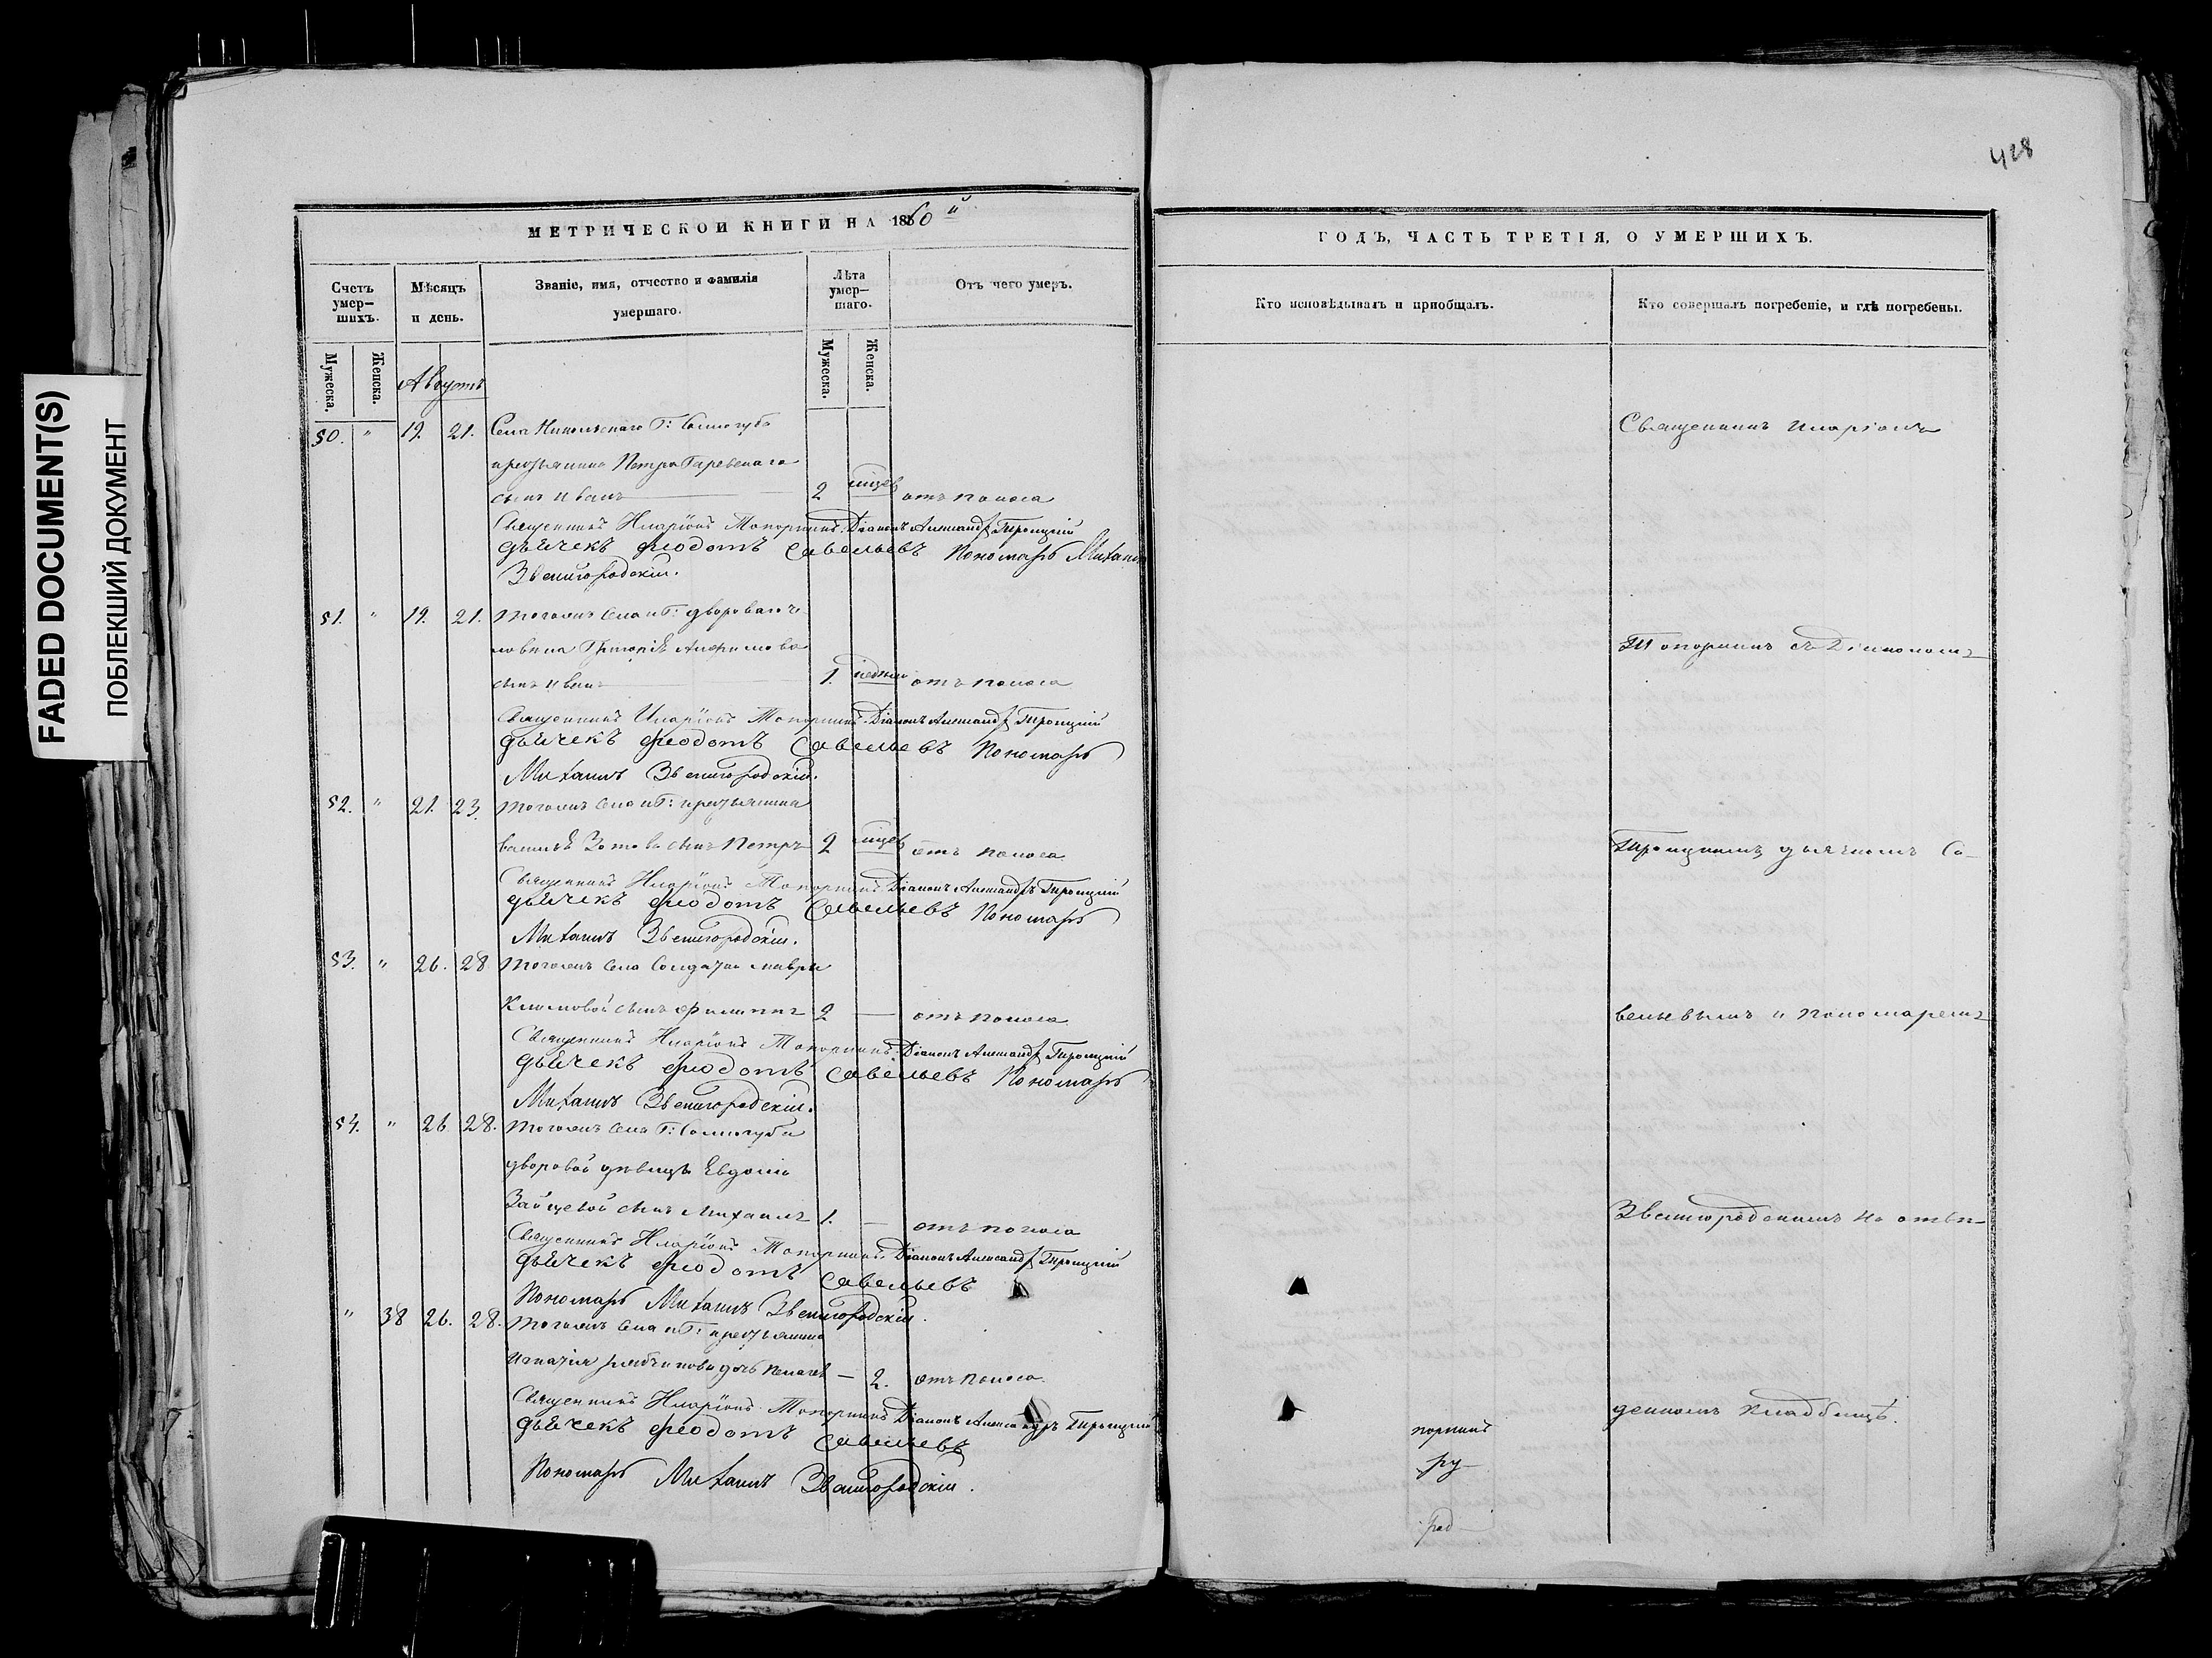 FADED DOCUMENT(S)
ПОБЛЕКШИЙ ДОКУМЕНТ
428
МЕТРИЧЕСКОЙ КНИГИ НА 1860й
Счетъ умер-
шихъ.
Мѣсяцъ
и день.
Званіе, имя, отчество и фамилія
умершаго.
Лѣта
умер-
шаго.
Отъ чего умеръ.
Мужеска.
Женска.
Мужеска.
Женска.
Августъ
50. " 19. 21. Села Никольскаго Г: Сологуба
крестьянина Петра
сынъ Иванъ 2 отъ поноса
Священникъ Иларіонъ Топорнинъ Діаконъ Александръ Троицкій
дьячекъ Феодотъ Савельевъ Пономарь Михаилъ
Звенигородскій.
51. " 19. 21. Тогожъ села и Г: дворова
Григорія
сынъ Иванъ 1. отъ поноса
Священникъ Иларіонъ Топорнинъ Діаконъ Александръ Троицкій
дьячекъ Феодотъ Савельевъ Пономарь
Михаилъ Звенигородскій.
52. " 21. 23. Тогожъ села и Г: крестьянина
Василья Зотова сынъ Петръ 2 отъ поноса
Священникъ Иларіонъ Топорнинъ Діаконъ Александръ Троицкій
дьячекъ Феодотъ Савельевъ Пономарь
Михаилъ Звенигородскій.
53. " 26. 28. Тогожъ села Солдатки Мавры
Климовой сынъ Филиппъ 2 — отъ поноса
Священникъ Иларіонъ Топорнинъ Діаконъ Александръ Троицкій
дьячекъ Феодотъ Савельевъ Пономарь
Михаилъ Звенигородскій.
54. " 26. 28. Тогожъ села Г: Сологуба
дворовой дѣвицы Евдокіи
Зайцевой сынъ Михаилъ 1. — отъ поноса
Священникъ Иларіонъ Топорнинъ Діаконъ Александръ Троицкій
дьячекъ Феодотъ Савельевъ
Пономарь Михаилъ Звенигородскій.
" 38 26. 28. Тогожъ села и Г: крестьянина
Игнатія дочь — 2. отъ поноса.
Священникъ Иларіонъ Топорнинъ Діаконъ Александръ Троицкій
дьячекъ Феодотъ Савельевъ
Пономарь Михаилъ Звенигородскій.
ГОДЪ, ЧАСТЬ ТРЕТІЯ, О УМЕРШИХЪ.
Кто исповѣдывалъ и пріобщалъ.
Кто совершалъ погребеніе, и гдѣ погребены.
Священникъ Иларіонъ
Топорнинъ съ Діакономъ
Троицкимъ, дьячкомъ Са-
вельевымъ и Пономаремъ
Звенигородскимъ на отве-
денномъ кладбищѣ.
порнинъ
ру-
рад-